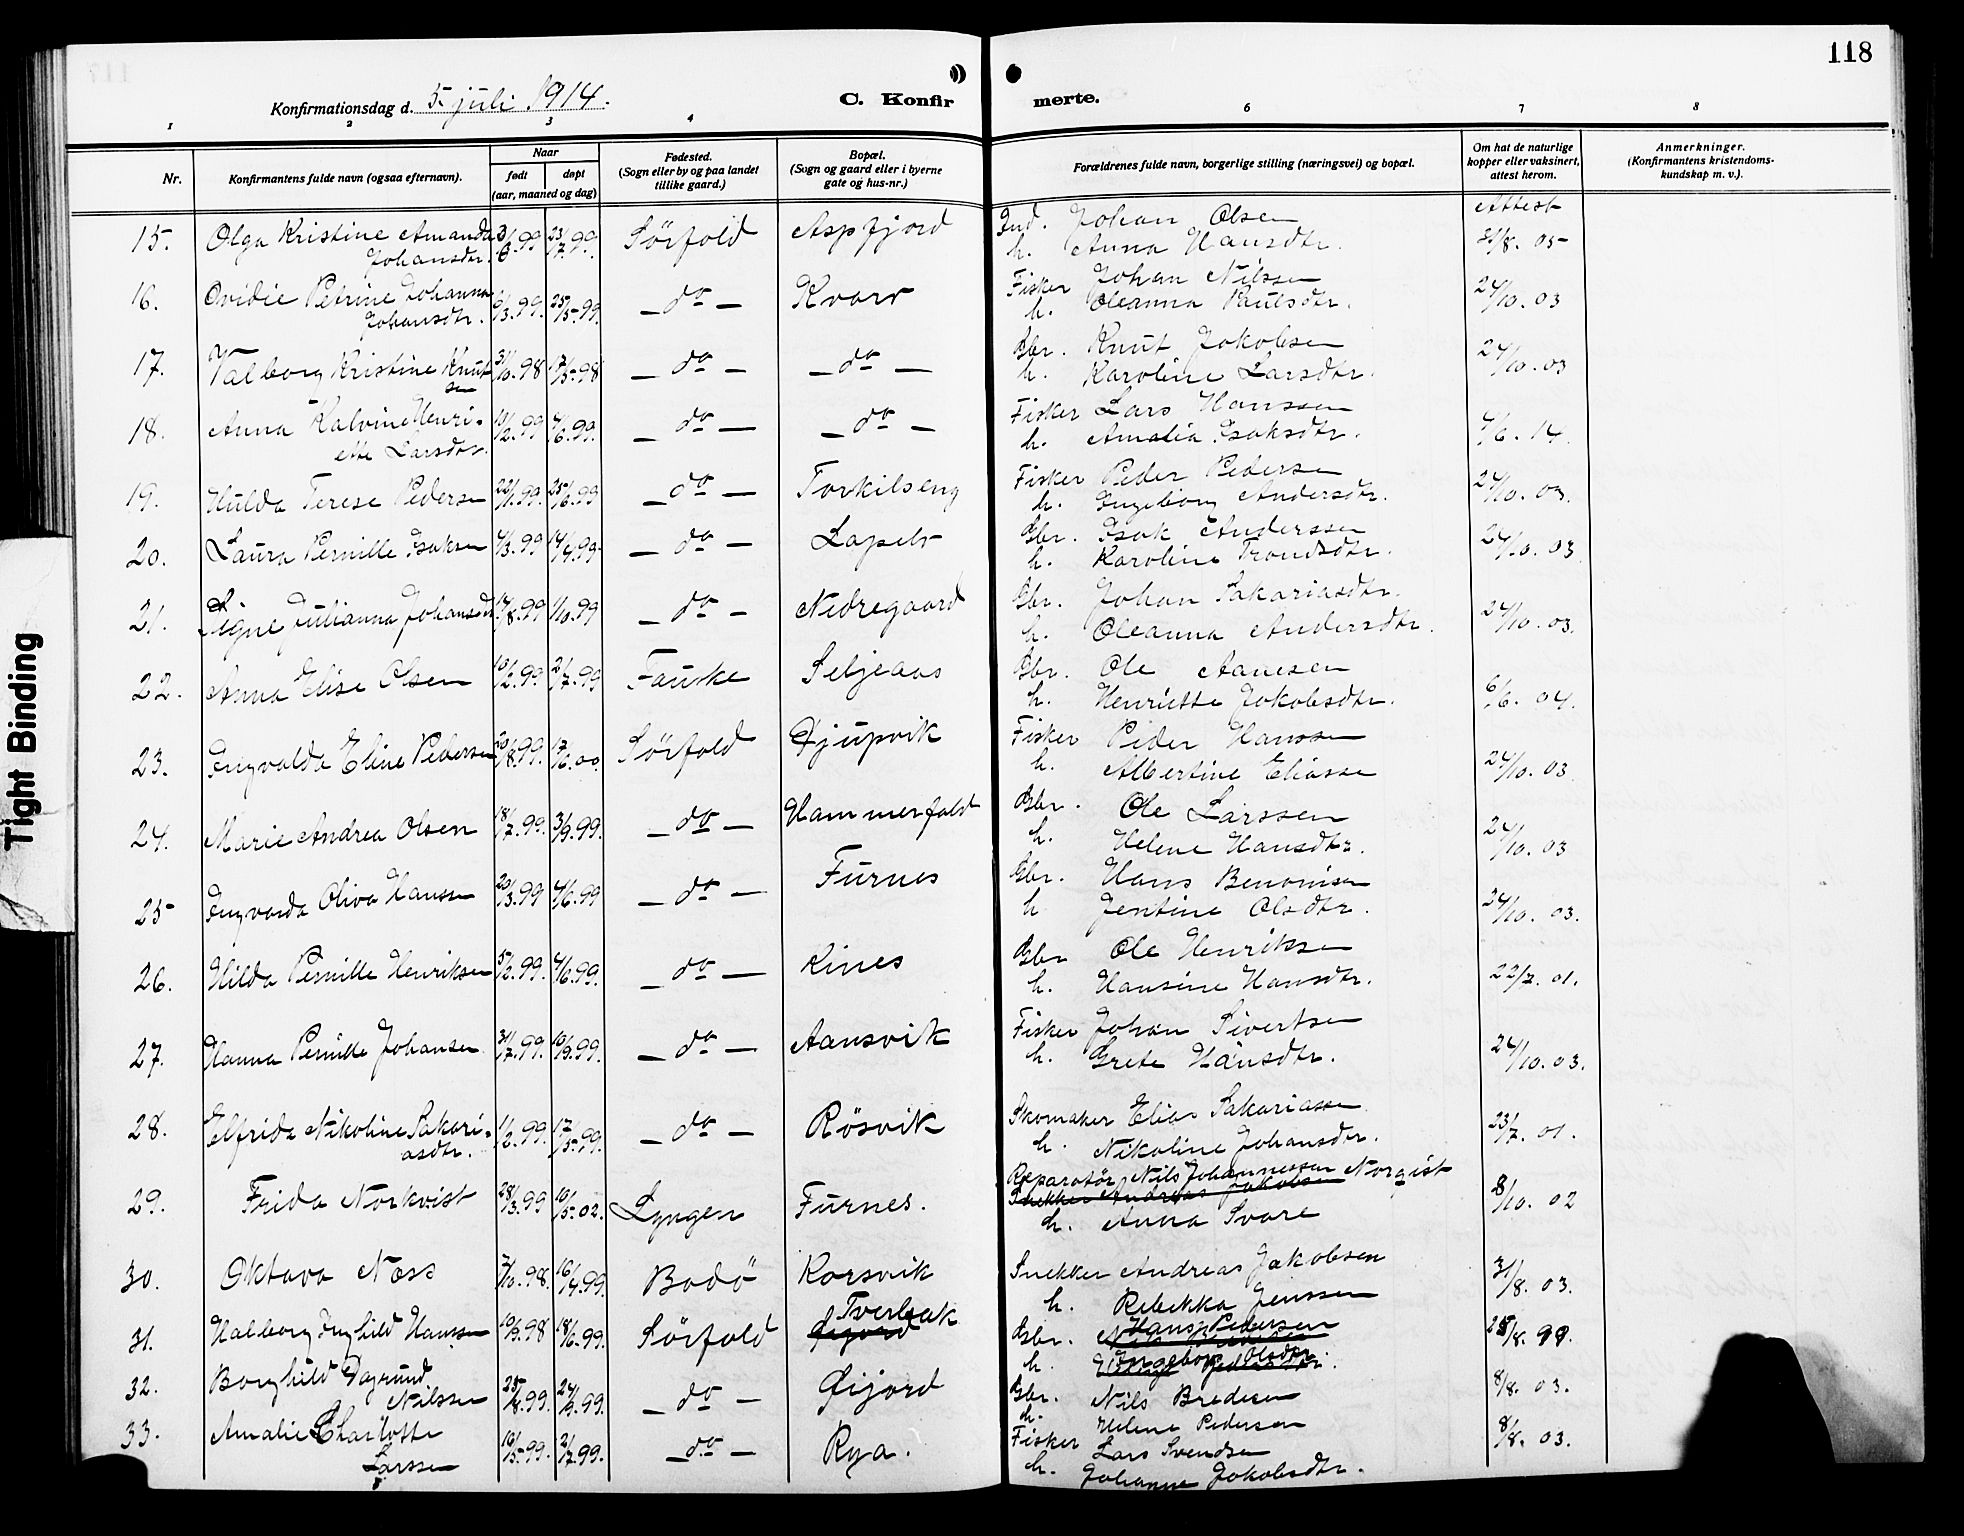 118
Konfirmationsdag d. 5. juli 1914.
C. Konfirmerte.
1 2 3 4 6 7 8
Nr. Konfirmantens fulde navn (ogsaa efternavn). Naar født døpt (aar, maaned og dag) Fødested. (Sogn eller by og paa landet tillike gaard.) Bopæl. (Sogn og gaard eller i byerne gate og hus-nr.) Forældrenes fulde navn, borgerlige stilling (næringsvei) og bopæl. Om hat de naturlige kopper eller vaksinert, attest herom. Anmerkninger. (Konfirmantens kristendomskundskap m. v.).
15. Olga Kristine Amanda Johansdtr. 3/6.99 23/7.99. Sörfold Aspfjord Ind. Johan Olsen Attest
h. Anna Hansdtr. 31/8.05
16. Ovidie Petrine Johanna Johansdtr. 6/3.99. 25/5.99. do Kvarv Fisker Johan Nilssen
h. Oleanna Paulsdtr. 24/10.03
17. Valborg Kristine Knutsen 31/10.98 17/5.98 do do Gbr. Knut Jakobsen
h. Karoline Larsdtr. 24/10.03
18. Anna Kalvine Henriette Larsdtr. 10/2.99 4/6.99. do do Fisker Lars Hanssen
h. Amalia Isaksdtr. 4/6.14.
19. Hulda Terese Pedersen 22/1.99. 25/6.99 do Torkilseng Fisker Peder Pedersen
h. Ingeborg Andersdtr. 24/10.03.
20. Laura Pernille Isaksen 4/3.99 14/4.99. do Lapelv Gbr. Isak Anderssen
h. Karoline Trondsdtr. 24/10.03
21. Signe Julianna Johansdtr 17/8.99 1/10.99 do Nedregaard Gbr. Johan Sakariasdtr.
h. Oleanna Andersdtr. 24/10.03.
22. Anna Elise Olsen 10/2.99 2/7.99 Fauske Seljeaas Gbr. Ole Aanesen
h. Henriette Jakobsdtr. 6/6.04.
23. Ingvalda Eline Pedersen 20/8.99. 17/6.00. Sörfold Djupvik Fisker Peder Hanssen
h. Albertine Eliassen 24/10.03
24. Marie Andrea Olsen 18/7.99. 3/9.99. do Hammerfald Gbr. Ole Larssen
h. Helene Hansdtr. 24/10.03
25 Ingvarda Oliva Hanssen 20/3.99 4/6.99 do Furnes Gbr. Hans Benonisen
h Jentine Olsdtr. 24/10.03.
26. Hilda Pernille Henriksen 5/2.99. 4/6.99. do Rines Gbr Ole Henriksen
h. Hansine Hansdtr. 22/7.01.
27. Hanna Pernille Johansen 31/7.99. 10/9.99. do Aansvik Fisker Johan Sivertsen
h. Grete Hansdtr. 24/10.03.
28. Elfrida Nikoline Sakariasdtr. 1/2.99. 17/5.99. do Rösvik Skomaker Elias Sakariassen
h. Nikoline Johansdtr. 23/7.01.
29. Frida Norkvist 28/3.99 10/5.02. Lyngen Furnes. Reparatör Nils Johannessen Norqist
Snekker Andreas Jakobsen
h. Anna Svare 8/10.02
30. Oktava Næss 7/10.98. 16/4.99. Bodö Korsvik Snekker Andreas Jakobsen
h. Rebekka Jenssen 31/8.03.
31. Halborg Inghild Hanssen 10/9.98 18/6.99. Sörfold Tverbak Øijord Gbr. Hans Pedersen
h. Ingebor Olsdtr. 25/8.99.
32. Borghild Dagrund Nilssen 25/8.99. 24/9.99. do Øijord Gbr. Nils Bredesen
h. Helene Pedersen 8/8.03.
33. Amalie Charlotte Larssen 16/5.99. 2/7.99. do Rya. Fisker Lars Svendsen
h. Johanne Jakobsdtr. 8/8.03.
Tight Binding